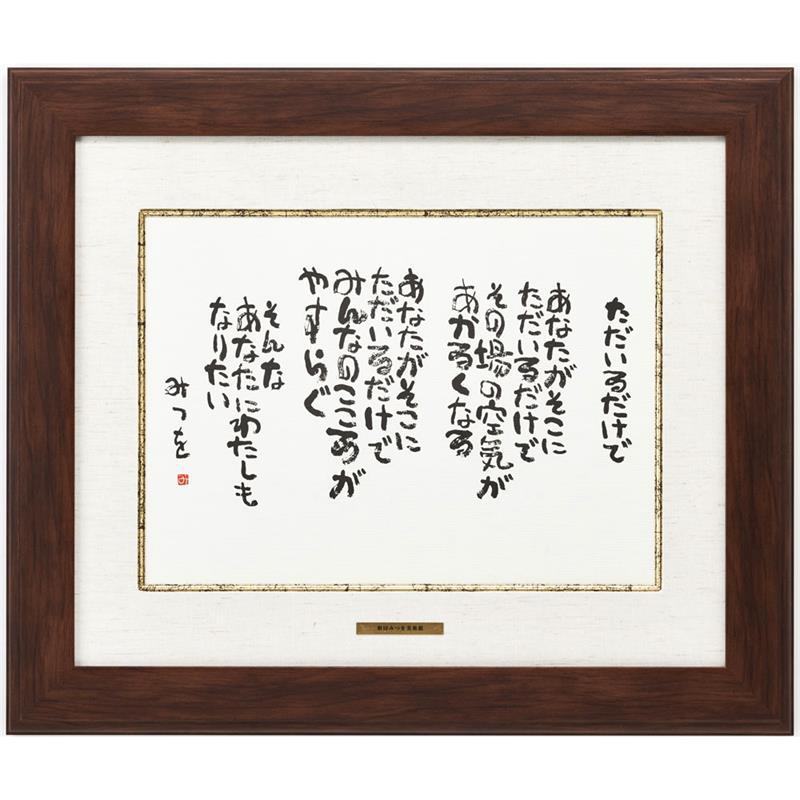 ただいるだけで
あなたがそこに
ただいるだけで
その場の空気が
あかるくなる
あなたがそこに
ただいるだけで
みんなのこころが
やすらぐ
そんな
あなたにわたしも
なりたい
みつを
み
相田みつを美術館